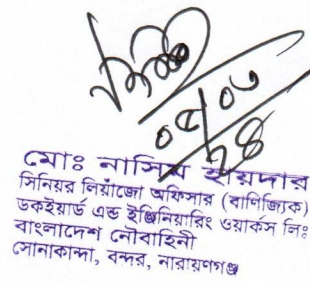 ০৫/০৩/২৪
মোঃ নাসিম হায়দার
সিনিয়র লিয়াঁজো অফিসার (বাণিজ্যিক)
ডকইয়ার্ড এন্ড ইঞ্জিনিয়ারিং ওয়ার্কস লিঃ
বাংলাদেশ নৌবাহিনী
সোনাকান্দা, বন্দর, নারায়ণগঞ্জ